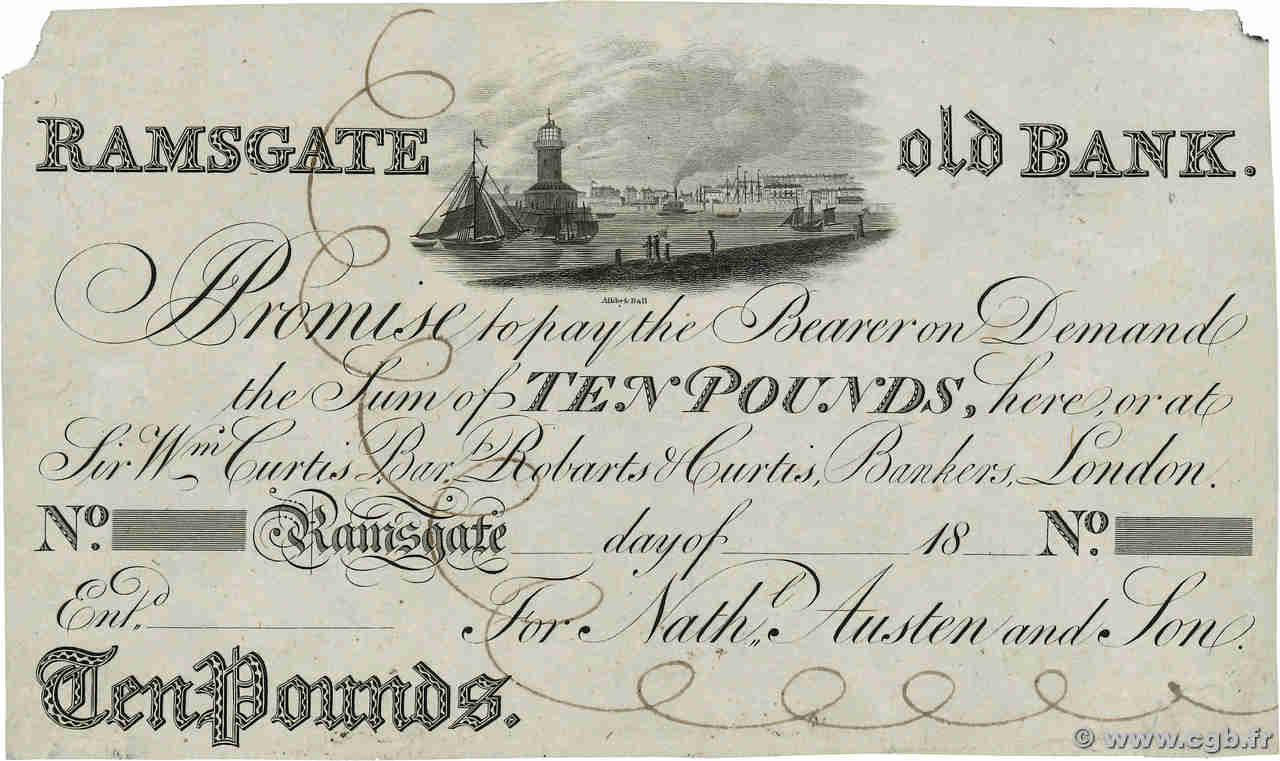 RAMSGATE old BANK.
Ashby & Ball
I Promise to pay the Bearer on Demand
the Sum of TEN POUNDS, here, or at
Sir Wm Curtis, Bart, Robarts & Curtis, Bankers, London.
No. Ramsgate ___ day of ___ 18 ___ No.
Entd. ___ For Nathl. Austen and Son.
Ten Pounds.
© www.cgb.fr